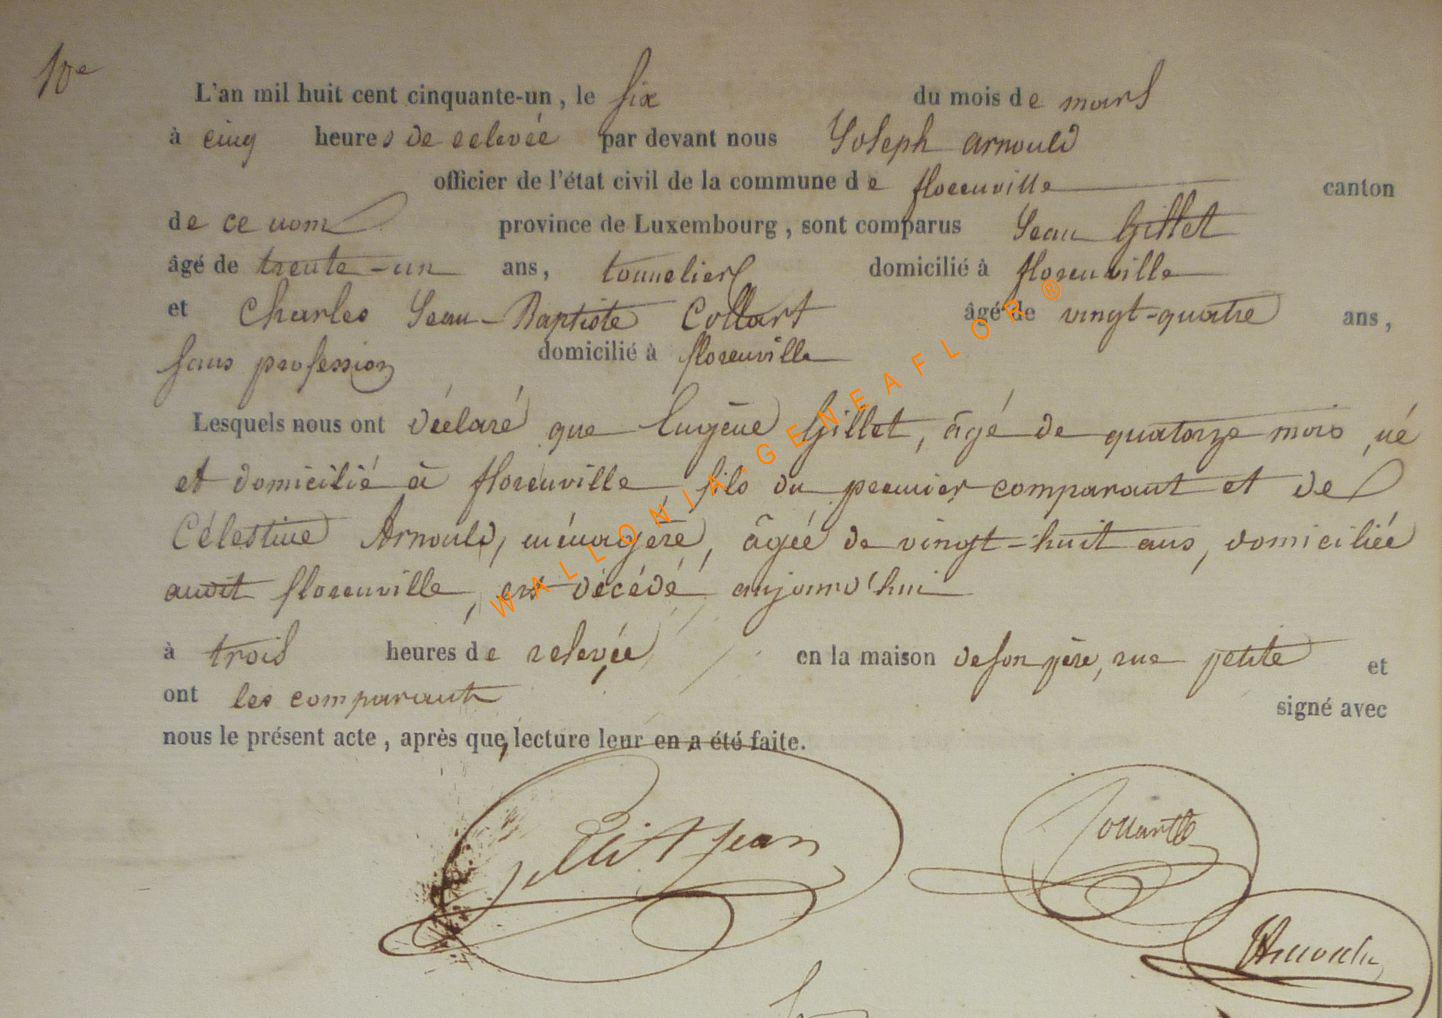 10e
L'an mil huit cent cinquante-un, le six du mois de mars
à cinq heures de relevée par devant nous Joseph Arnould
officier de l'état civil de la commune de florenville canton
de ce nom province de Luxembourg, sont comparus Jean Gillet
âgé de trente-un ans, tonnelier domicilié à florenville
et Charles Jean-Baptiste Collart âgé de vingt-quatre ans,
sans profession domicilié à florenville
Lesquels nous ont déclaré que Eugène Gillet, âgé de quatorze mois, né
et domicilié à florenville, fils du premier comparant et de
Célestine Arnould, ménagère, âgée de vingt-huit ans, domiciliée
audit florenville, est décédé aujourd'hui
à trois heures de relevée en la maison de son père, rue petite et
ont les comparants signé avec
nous le présent acte, après que lecture leur en a été faite.
Gillet Jean
Collart
Arnould
WALLONIA-GENEAFLOR ®